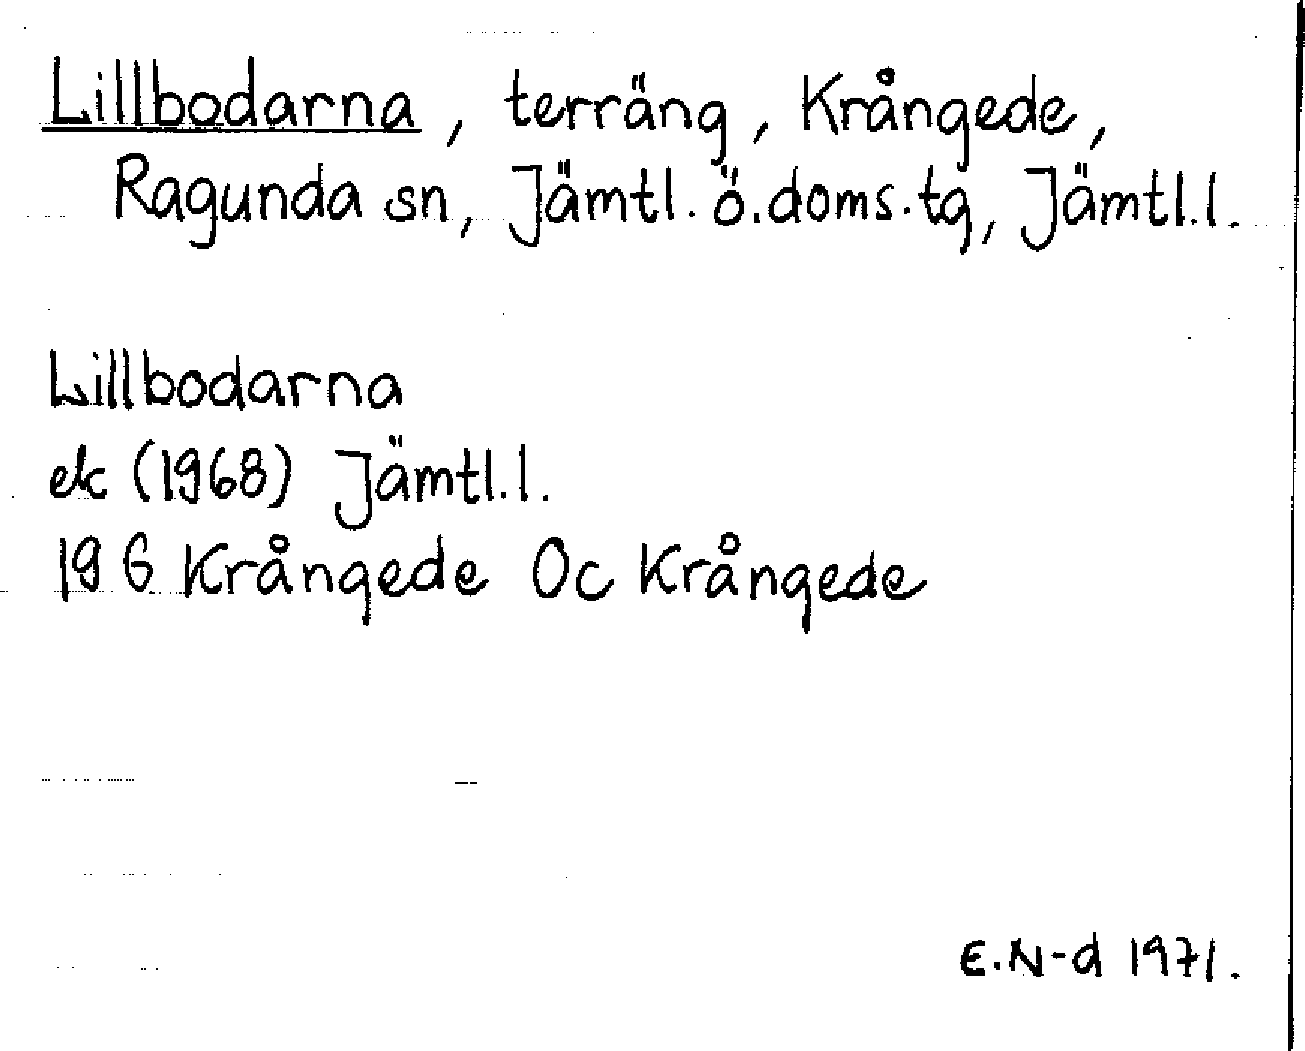 Lillbodarna, terräng, Krångede,
Ragunda sn, Jämtl. ö.doms.tg, Jämtl.l.
Lillbodarna
ek (1968) Jämtl.l.
19 G Krångede Oc Krångede
E.N-d 1971.